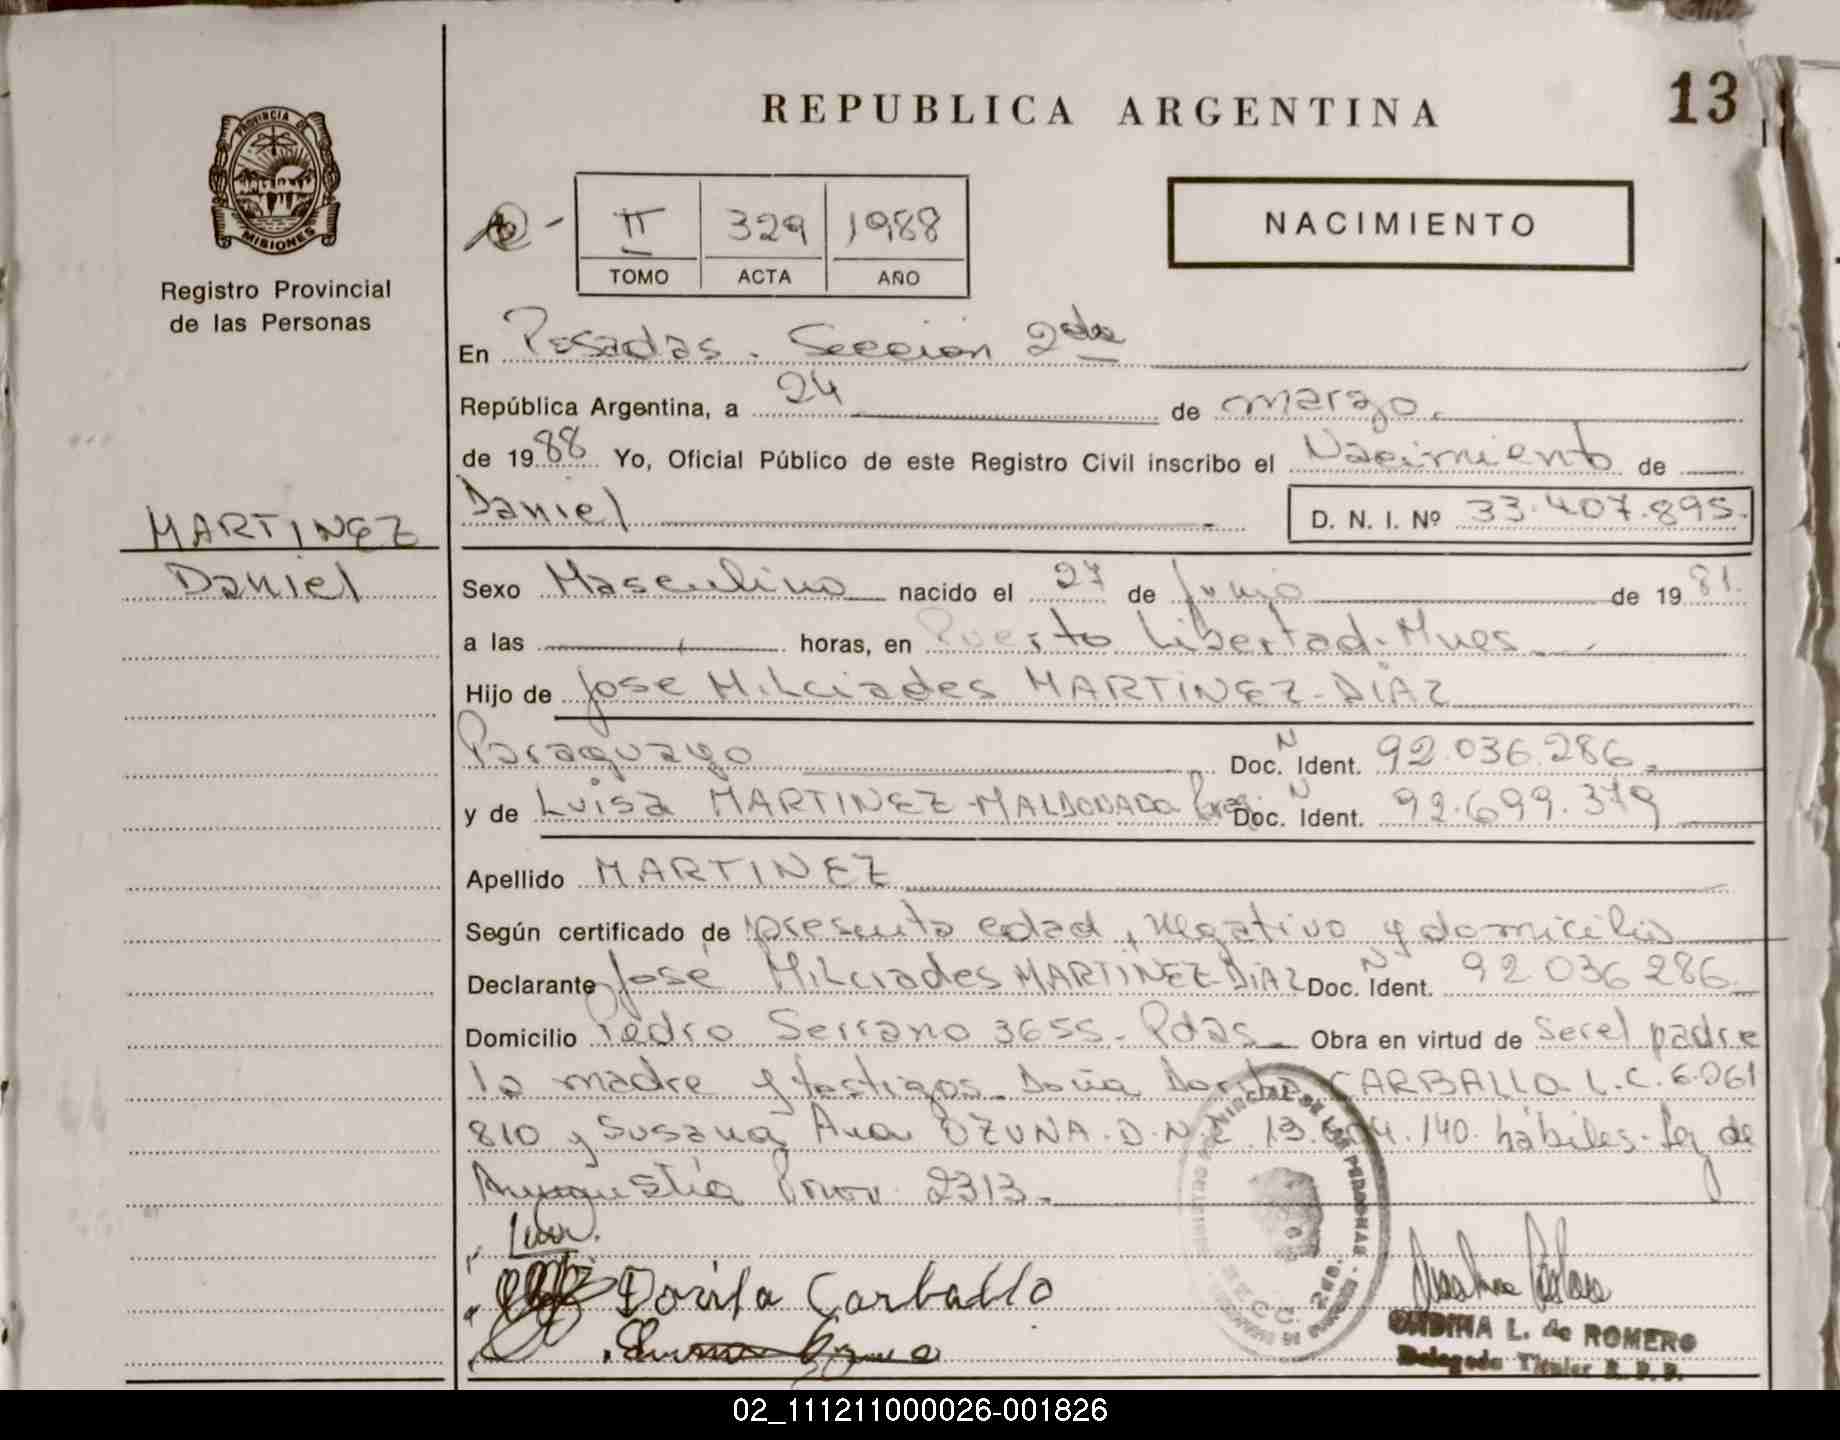 REPUBLICA ARGENTINA
13
PROVINCIA DE
MISIONES
Registro Provincial
de las Personas
II 329 1988
TOMO ACTA AÑO
NACIMIENTO
En Posadas. Sección 2da
República Argentina, a 24 de marzo.
de 1988 Yo, Oficial Público de este Registro Civil inscribo el Nacimiento de
Daniel D. N. I. Nº 33.407.895.
MARTINEZ
Daniel
Sexo Masculino nacido el 27 de Junio de 1981.
a las horas, en Puerto Libertad. Mnes
Hijo de Jose Milciades MARTINEZ-DIAZ
Paraguayo Doc. N Ident. 92.036.286.
y de Luisa MARTINEZ-MALDONADO Parag. Doc. N Ident. 92.699.379
Apellido MARTINEZ
Según certificado de presunta edad, negativo y domicilio
Declarante José Milciades MARTINEZ-DIAZ Doc. N Ident. 92 036 286.
Domicilio Pedro Serrano 3655. Pdas Obra en virtud de Ser el padre
la madre y testigos. Doña Dorila CARBALLO L.C. 6.061
810 y Susana Ana OZUNA. D.N.I. 13. .140. hábiles. de
2313.
Dorila Carballo
REGISTRO PROVINCIAL DE LAS PERSONAS
ONDINA L. de ROMERO
Delegada Titular R. P. P.
02_111211000026-001826